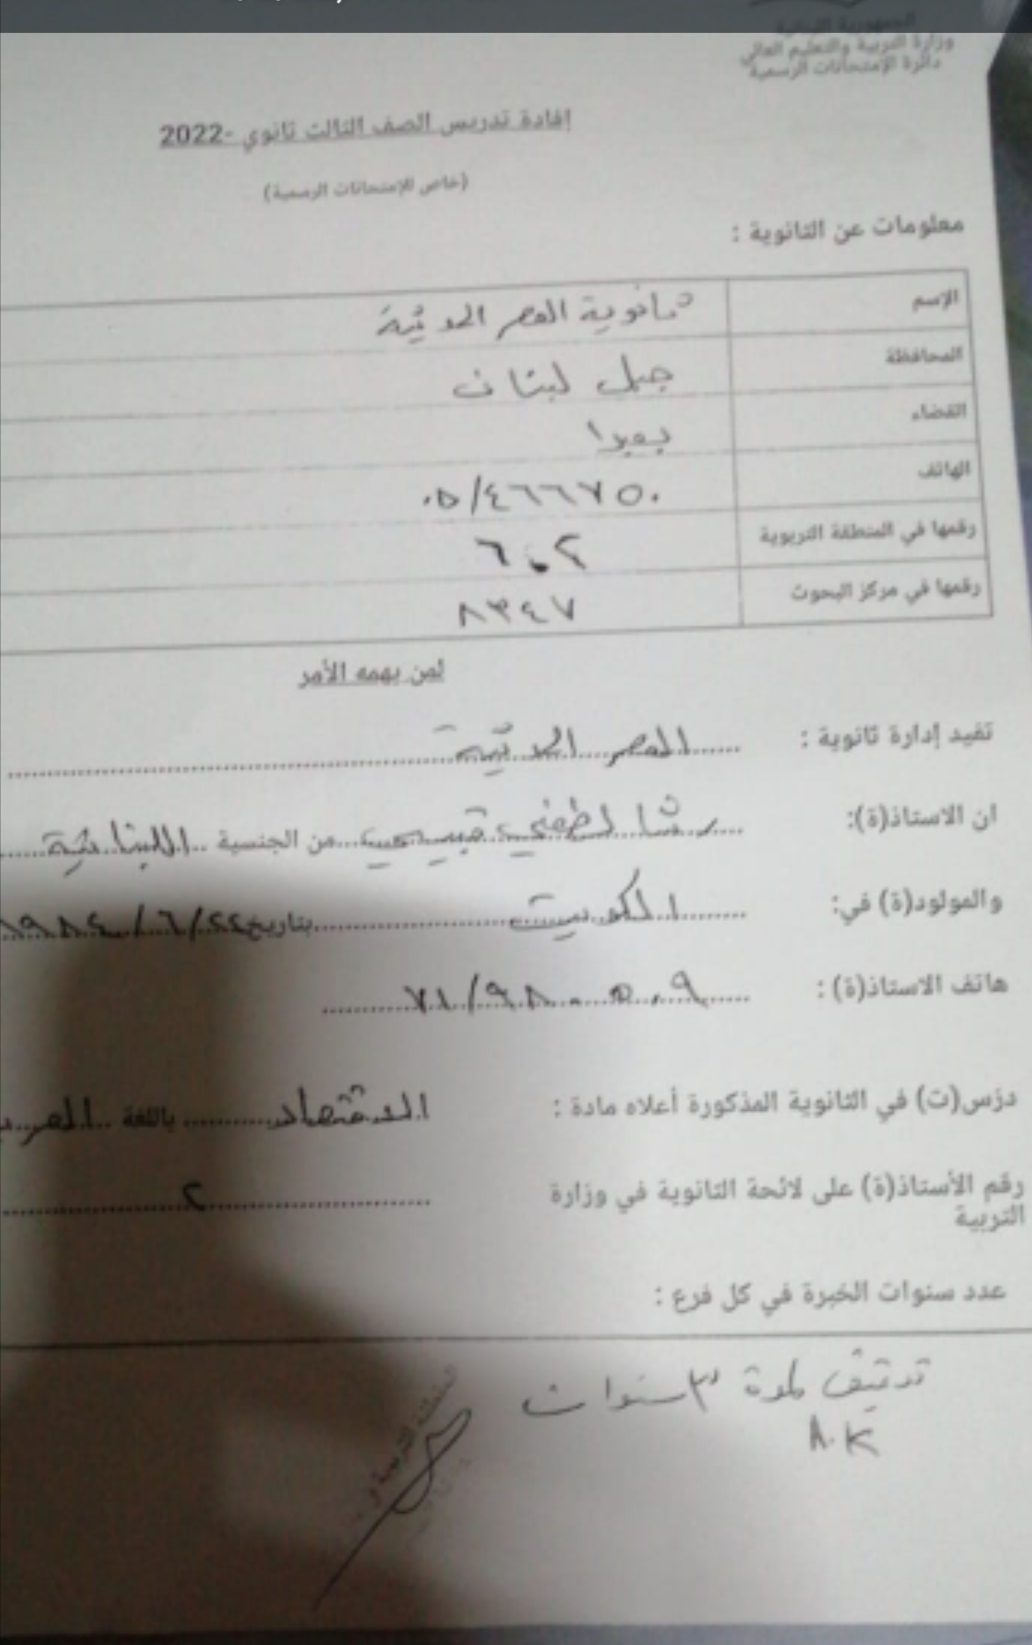 الجمهورية اللبنانية
وزارة التربية والتعليم العالي
دائرة الإمتحانات الرسمية
إفادة تدريس الصف الثالث ثانوي -2022
(خاص للإمتحانات الرسمية)
معلومات عن الثانوية :
الإسم ثانوية العصر الحديثة
المحافظة جبل لبنان
القضاء بعبدا
الهاتف ٠٥/٤٦٦٧٥٠
رقمها في المنطقة التربوية ٦٠٢
رقمها في مركز البحوث ٨٣٤٧
لمن يهمه الأمر
تفيد إدارة ثانوية : العصر الحديثة
ان الاستاذ(ة): رشا لطفي قبيسي من الجنسية اللبنانية
والمولود(ة) في: الكويت بتاريخ ٢٤/٦/١٩٨٤
هاتف الاستاذ(ة) : ٧١/٩٨٠٥٠٩
درّس(ت) في الثانوية المذكورة أعلاه مادة : الاقتصاد باللغة
رقم الأستاذ(ة) على لائحة الثانوية في وزارة ٢
التربية
عدد سنوات الخبرة في كل فرع :
تدقيق لمدة ٣ سنوات
A.K